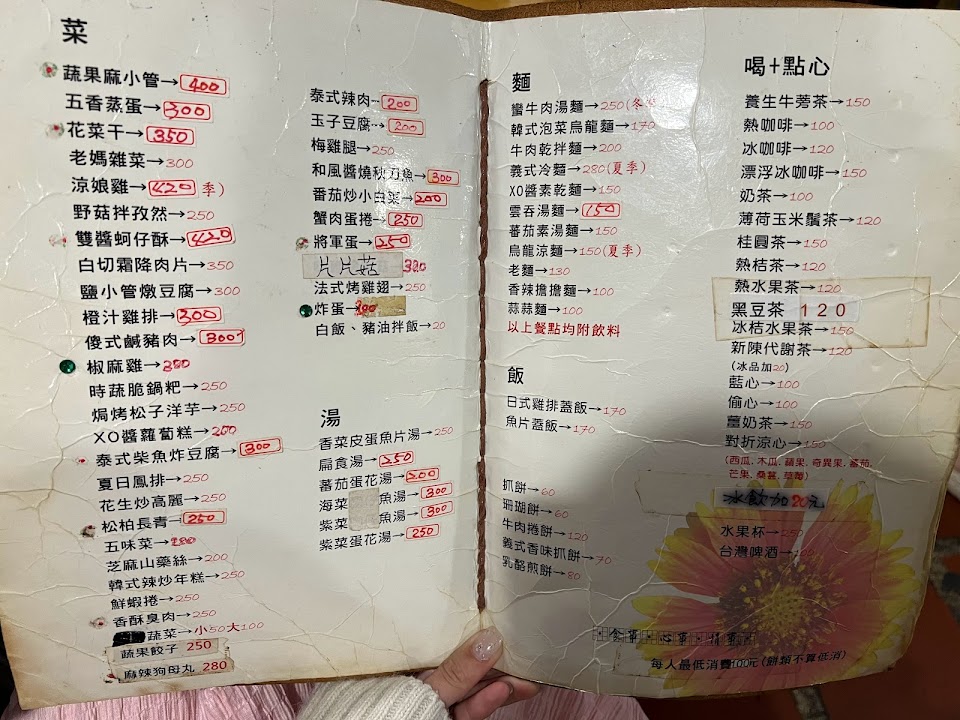 菜
蔬果麻小管→400
五香蒸蛋→300
花菜干→350
老媽雜菜→300
涼娘雞→420 季)
野菇拌孜然→250
雙醬蚵仔酥→420
白切霜降肉片→350
鹽小管燉豆腐→300
橙汁雞排→300
傻式鹹豬肉→300
椒麻雞→380
時蔬脆鍋粑→250
焗烤松子洋芋→250
XO醬蘿蔔糕→200
泰式柴魚炸豆腐→300
夏日鳳排→250
花生炒高麗→250
松柏長青→250
五味菜→
芝麻山藥絲→200
韓式辣炒年糕→250
鮮蝦捲→250
香酥臭肉→250
蔬菜→小50大100
蔬果餃子 250
麻辣狗母丸 280
泰式辣肉→200
玉子豆腐→200
梅雞腿→250
和風醬燒秋刀魚→300
番茄炒小白菜→200
蟹肉蛋捲→250
將軍蛋→250
片片菇 320
法式烤雞翅→250
炸蛋→
白飯、豬油拌飯→20
湯
香菜皮蛋魚片湯→250
扁食湯→250
蕃茄蛋花湯→200
海菜 魚湯→300
紫菜 魚湯→300
紫菜蛋花湯→250
麵
蠻牛肉湯麵→250(冬
韓式泡菜烏龍麵→170
牛肉乾拌麵→200
義式冷麵→280(夏季)
XO醬素乾麵→150
雲吞湯麵→150
蕃茄素湯麵→150
烏龍涼麵→150(夏季)
老麵→130
香辣擔擔麵→100
蒜蒜麵→100
以上餐點均附飲料
飯
日式雞排蓋飯→170
魚片蓋飯→170
抓餅→60
珊瑚餅→60
牛肉捲餅→120
義式香味抓餅→70
乳酪煎餅→80
喝+點心
養生牛蒡茶→150
熱咖啡→100
冰咖啡→120
漂浮冰咖啡→150
奶茶→100
薄荷玉米鬚茶→120
桂圓茶→150
熱桔茶→120
熱水果茶→120
黑豆茶 120
冰桔水果茶→150
新陳代謝茶→120
(冰品加20)
藍心→100
偷心→100
薑奶茶→150
對折涼心→150
(西瓜.木瓜.蘋果.奇異果.蕃茄.
芒果.桑葚.草莓)
冰飲加20元
水果杯→250
台灣啤酒→
食事・心事・情事
每人最低消費100元(餅類不算低消)